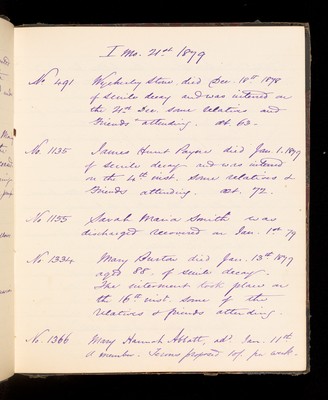 I Mo. 21st 1879
No 491 Wycherly Stow died Dec. 18th 1878
of senile decay and was interred on
the 21st Dec. some relatives and
Friends attending. Æt 62.
No. 1135 James Hunt Payne died Jan 1. 1879
of senile decay and was interred
on the 4th inst. some relatives &
Friends attending. Æt. 72.
No 1125 Sarah Maria Smith was
discharged recovered on Jan. 1st 79
No 1334 Mary Burton died Jan. 13th 1879
aged 88. of senile decay.
The interment took place on
the 16th inst. some of the
relatives & friends attending.
No. 1366 Mary Hannah Abbatt, adt. Jan. 11th
A member. Terms proposed 10/. per week.